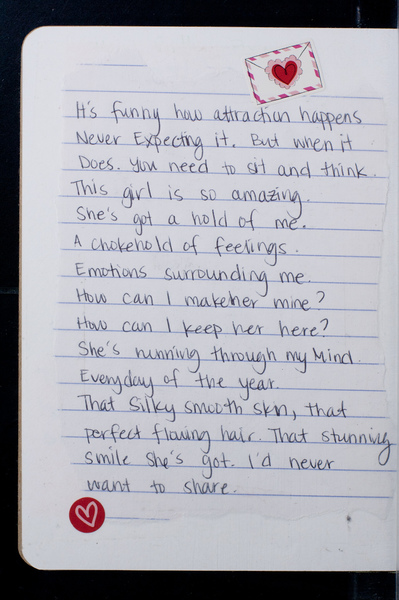 It's funny how attraction happens
Never Expecting it. But when it
Does. You need to sit and think.
This girl is so amazing.
She's got a hold of me.
A chokehold of feelings.
Emotions surrounding me.
How can I make her mine?
How can I keep her here?
She's running through my Mind.
Everyday of the year.
That Silky smooth skin, that
perfect flowing hair. That stunning
smile She's got. I'd never
want to share.